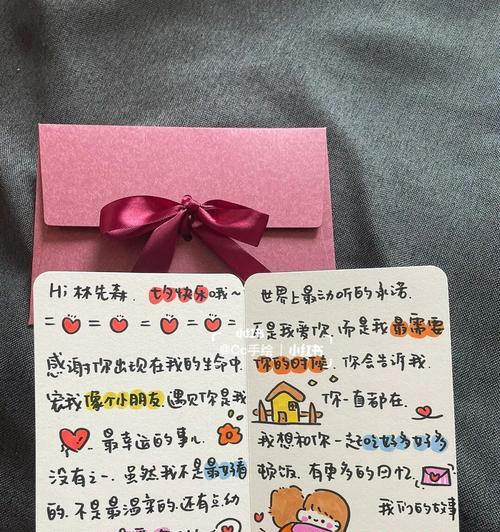 Hi 林先森. 七夕快乐哦~
= = = =
感谢你出现在我的生命中
宠我像个小朋友. 遇见你是我
最幸运的事儿.
没有之一. 虽然我不是最好看
的. 不是最温柔的. 还有点幼
世界上最动听的承诺.
不是我爱你. 而是我最需要
你的时候. 你会告诉我.
你一直都在.
我想和你一起吃好多好多
顿饭. 有更多的回忆.
我们的故事
小红书
@Cc手绘 | 小红书